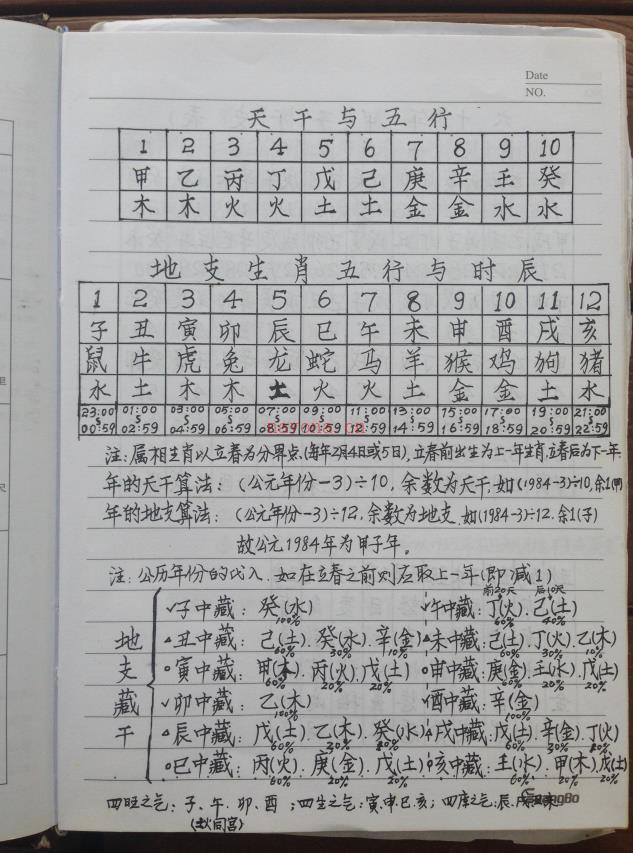 Date
NO.
天干与五行
1 2 3 4 5 6 7 8 9 10
甲 乙 丙 丁 戊 己 庚 辛 壬 癸
木 木 火 火 土 土 金 金 水 水
地支生肖五行与时辰
1 2 3 4 5 6 7 8 9 10 11 12
子 丑 寅 卯 辰 巳 午 未 申 酉 戌 亥
鼠 牛 虎 兔 龙 蛇 马 羊 猴 鸡 狗 猪
水 土 木 木 土 火 火 土 金 金 土 水
23:00 01:00 03:00 05:00 07:00 09:00 11:00 13:00 15:00 17:00 19:00 21:00
00:59 02:59 04:59 06:59 08:59 10:59 12:59 14:59 16:59 18:59 20:59 22:59
注:属相生肖以立春为分界点,(每年2月4日或5日),立春前出生为上一年生肖,立春后为下一年.
年的天干算法:(公元年份-3)÷10,余数为天干,如(1984-3)÷10,余1(甲)
年的地支算法:(公元年份-3)÷12,余数为地支,如(1984-3)÷12.余1(子)
故公元1984年为甲子年。
注:公历年份的代入.如在立春之前则应取上一年(即减1)
前20天 后10天
地支藏干
✓子中藏:癸(水) ✓午中藏:丁(火).己(土)
100% 60% 40%
▵丑中藏:己(土).癸(水).辛(金) ▵未中藏:己(土).丁(火).乙(木)
60% 30% 10% 60% 30% 10%
○寅中藏:甲(木).丙(火).戊(土) ○申中藏:庚(金).壬(水).戊(土)
60% 20% 20% 60% 20% 20%
✓卯中藏:乙(木) ✓酉中藏:辛(金)
100% 100%
▵辰中藏:戊(土).乙(木).癸(水) ▵戌中藏:戊(土).辛(金).丁(火)
60% 30% 60% 30%
○巳中藏:丙(火).庚(金).戊(土) ○亥中藏:壬(水).甲(木).戊(土)
60% 20% 20% 60% 20% 20%
四旺之气:子、午.卯.酉;四生之气:寅.申.巳.亥;四库之气:辰.戌.丑.未
(土火同宫)